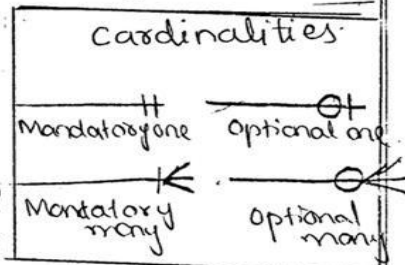 cardinalities
Mandatory one Optional one
Mandatory Optional
many many